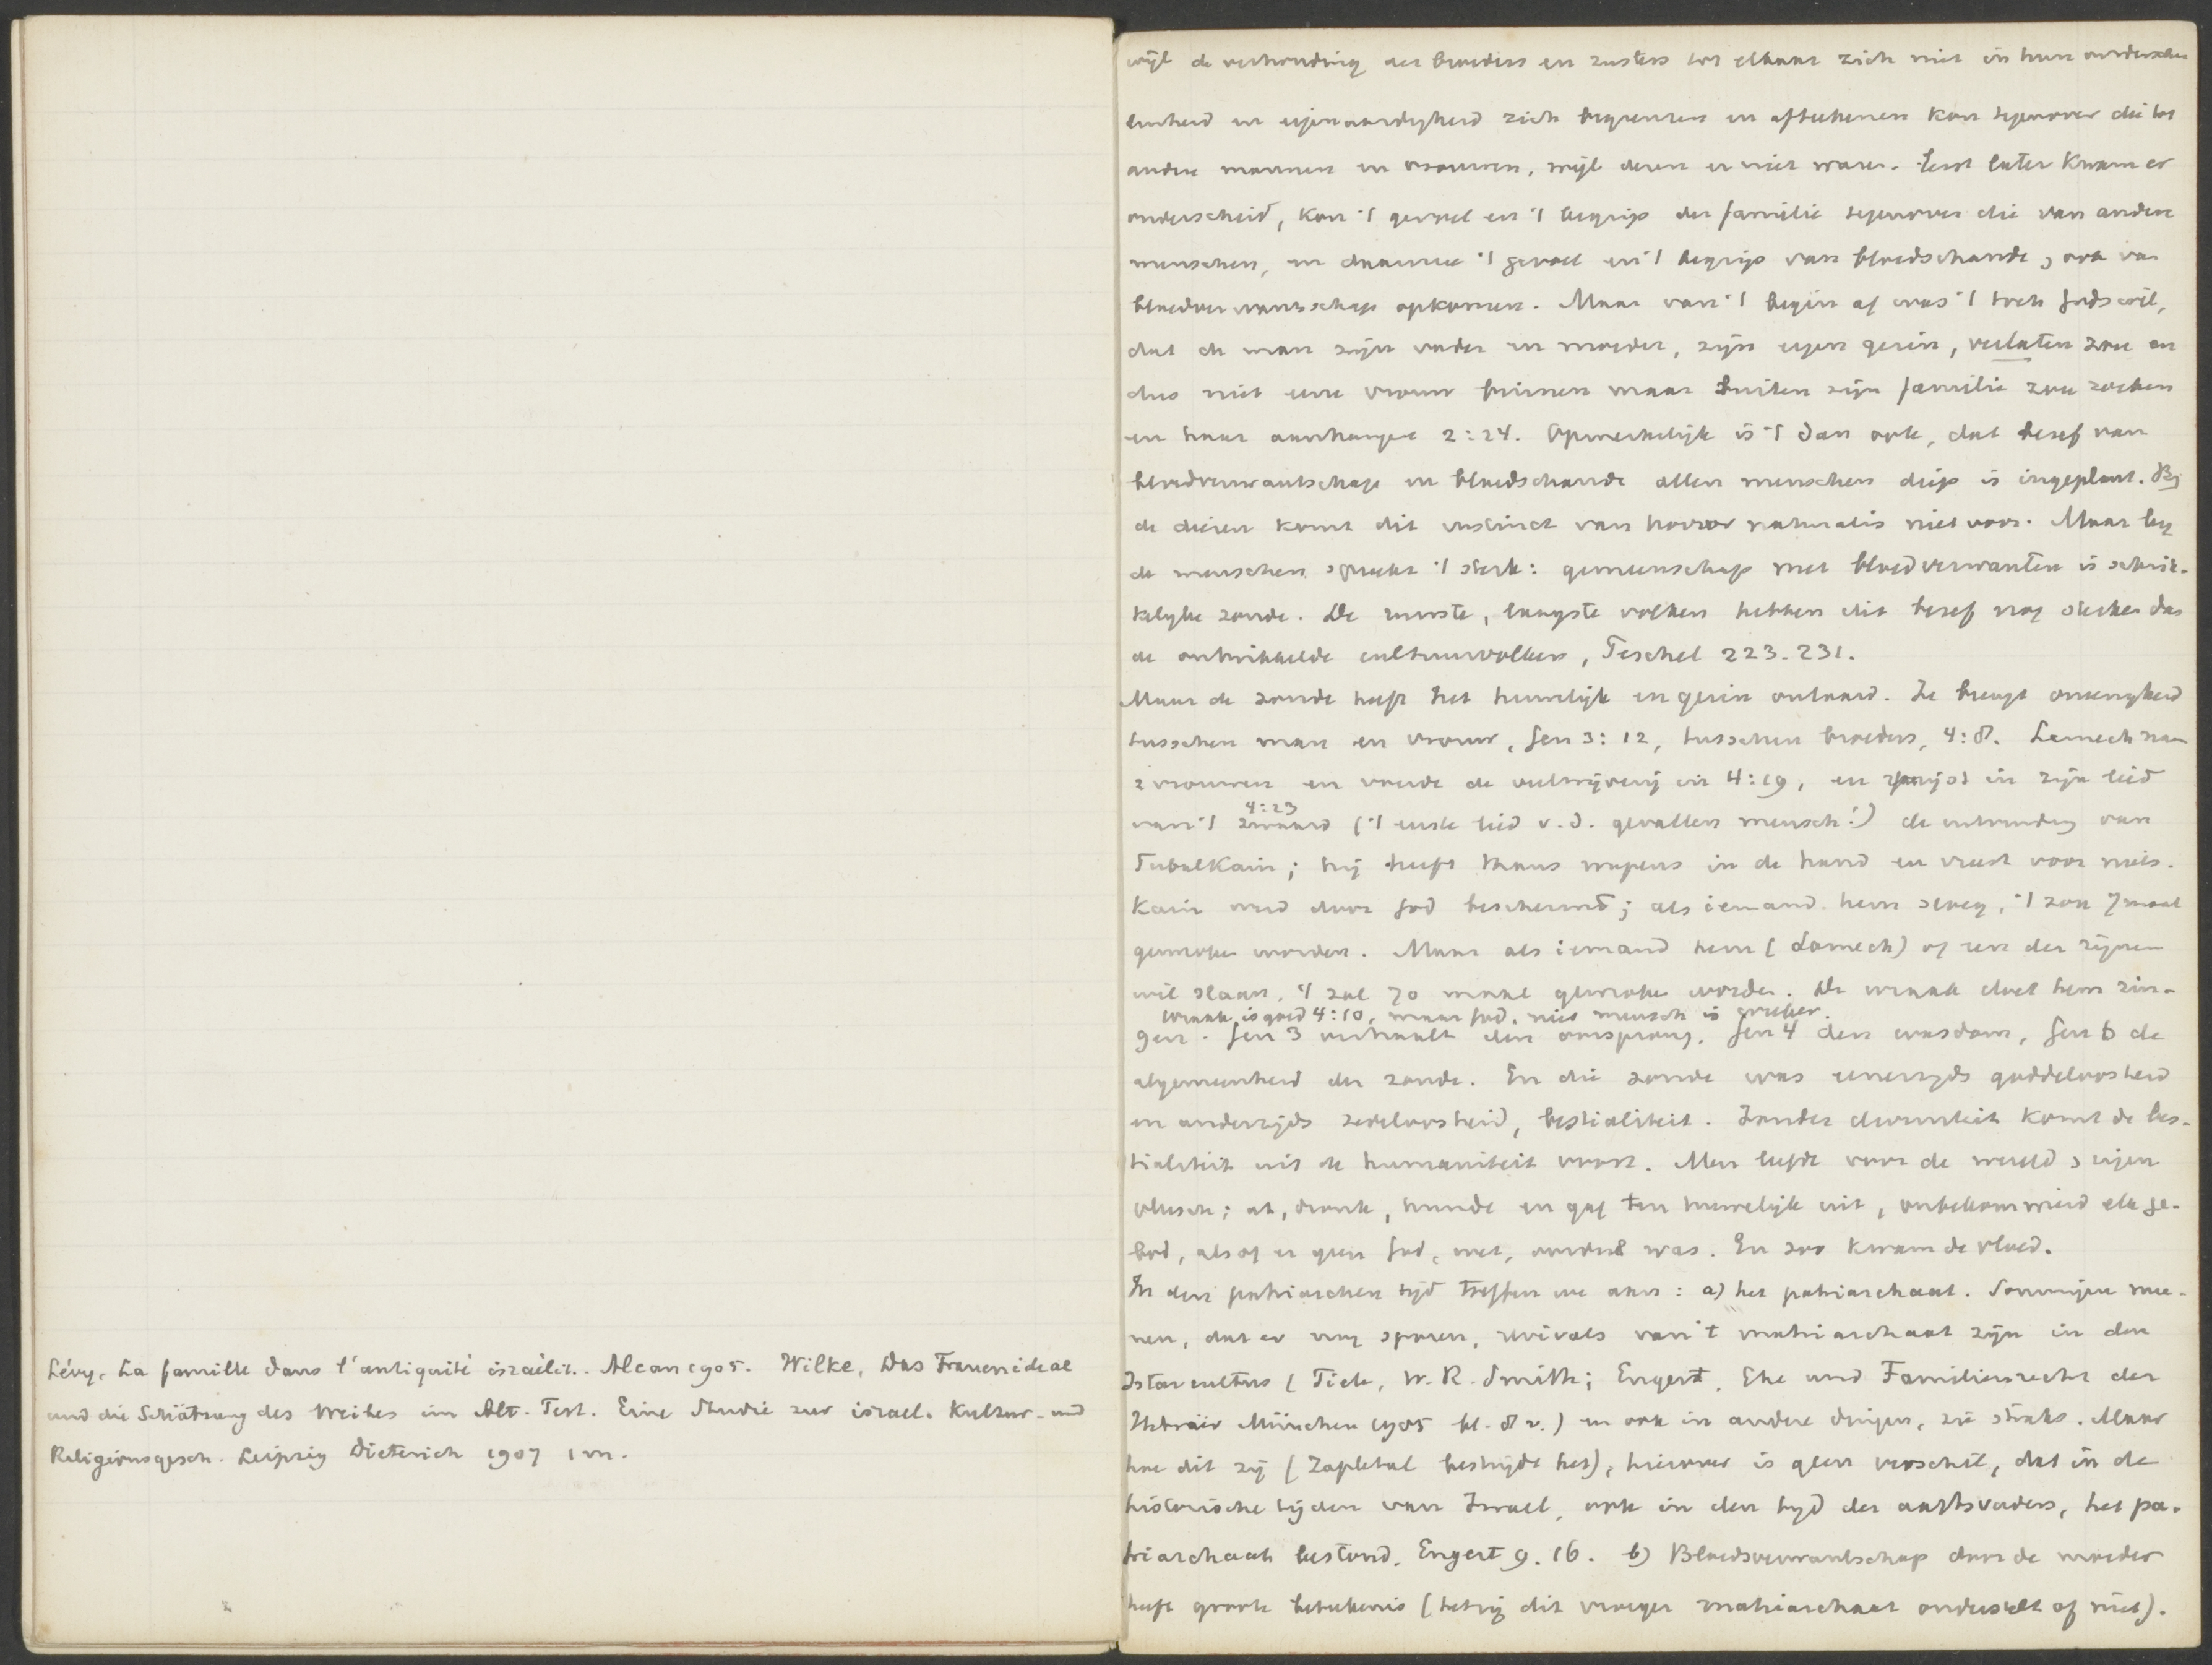 Lévy, La famille dans l'antiquité israélit.. Alcan 1905. Wilke, Das Frauenideal
und die Schätzung des Weibes im Alt. Test. Eine Studie zur israel. Kultur- und
Religionsgesch. Leipzig Dieterich 1907 1 m.
wijl de verhouding der broeders en zusters tot elkaar zich niet in hun onderschei
denheid en eigenaardigheid zich begrenzen en afteekenen kon tegenover die tot
andere mannen en vrouwen, wijl deren er niet waren. Eerst later kwam er
onderscheid, kon 't gevoel en 't begrip der familie tegenover die van andere
menschen, en daarmee 't gevoel en 't begrip van bloedschande, ook van
bloedverwantschap opkomen. Maar van 't begin af was 't toch Gods wil,
dat de man zijn vader en moeder, zijn eigen gezin, verlaten zou en
dus niet eene vrouw binnen maar buiten zijn familie zou zoeken
en haar aanhangen 2:24. Opmerkelijk is 't dan ook, dat besef van
bloedverwantschap en bloedschande allen menschen diep is ingeplant. Bij
de dieren komt dit instinct van horror naturalis niet voor. Maar bij
de menschen spreekt 't sterk: gemeenschap met bloedverwanten is schrik-
kelijke zonde. De ruwste, laagste volken hebben dit besef nog sterker dan
de ontwikkelde cultuurvolken, Peschel 223-231.
Maar de zonde heeft het huwelijk en gezin ontaard. Ze brengt oneenigheid
tusschen man en vrouw, Gen 3:12, tusschen broeders, 4:8. Lamech nam
2 vrouwen en voerde de veelwijverij in 4:19, en prijst in zijn lied
van 't zwaard 4:23 ('t eerste lied v.d. gevallen mensch!) de uitvinding van
Tubalkain; hij heeft thans wapens in de hand en vreest voor niets.
Kain werd door God beschermd; als iemand hem sloeg, 't zou 7 maal
gewroken worden. Maar als iemand hem (Lamech) of een der zijnen
wil slaan, 't zal 70 maal gewroken worden. De wraak doet hem zin-
wraak is goed 4:10, maar God, niet mensch is wreker.
gen. Gen 3 verhaalt den oorsprong, Gen 4 den wasdom, Gen 6 de
algemeenheid der zonde. En die zonde was eenerzijds goddeloosheid
en anderzijds zedeloosheid, bestialiteit. Zonder diviniteit komt de bes-
tialiteit uit de humaniteit voort. Men leefde voor de wereld, eigen
vleesch; at, dronk, huwde en gaf ten huwelijk uit, onbekommerd elk ge-
bod, alsof er geen God, wet, oordeel was. En zoo kwam de vloed.
In den patriarchen tijd treffen we aan: a) het patriarchaat. Sommigen mee-
nen, dat er nog sporen, revivals van 't matriarchaat zijn in den
Istarcultus (Tiele, W.R. Smith; Engert, Ehe und Familienrecht der
Hebräer München 1905 bl. 8 v.) en ook in andere dingen, zie straks. Maar
hoe dit zij (Zapletal bestrijdt het), hierover is geen verschil, dat in de
historische tijden van Israel, ook in den tijd der aartsvaders, het pa-
triarchaat bestond. Engert 9. 16. b) Bloedverwantschap door de moeder
heeft groote beteekenis (hetzij dit vroeger matriarchaat onderstelt of niet).